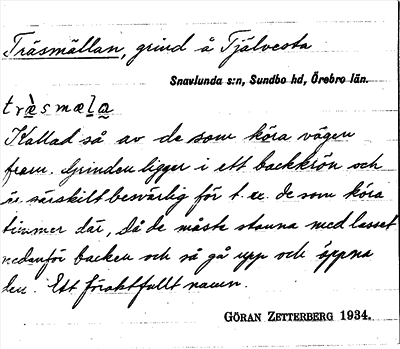 Träsmällan, grind å Tjälvesta
Snavlunda s:n, Sundbo hd, Örebro län.
træ̀smæl̲a̰
Kallad så av de som köra vägen
fram. Grinden ligger i ett backkrön och
är särskilt besvärlig för t. ex. de som köra
timmer där, då de måste stanna med lasset
nedanför backen och så gå upp och öppna
den. Ett föraktfullt namn.
GÖRAN ZETTERBERG 1934.